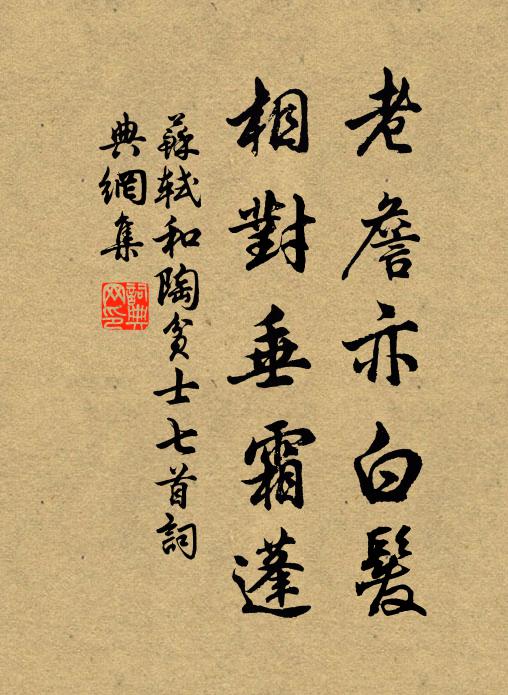 老詹亦白髮
相對垂霜蓬
蘇軾和陶貧士七首詞
典網集
詞典網印